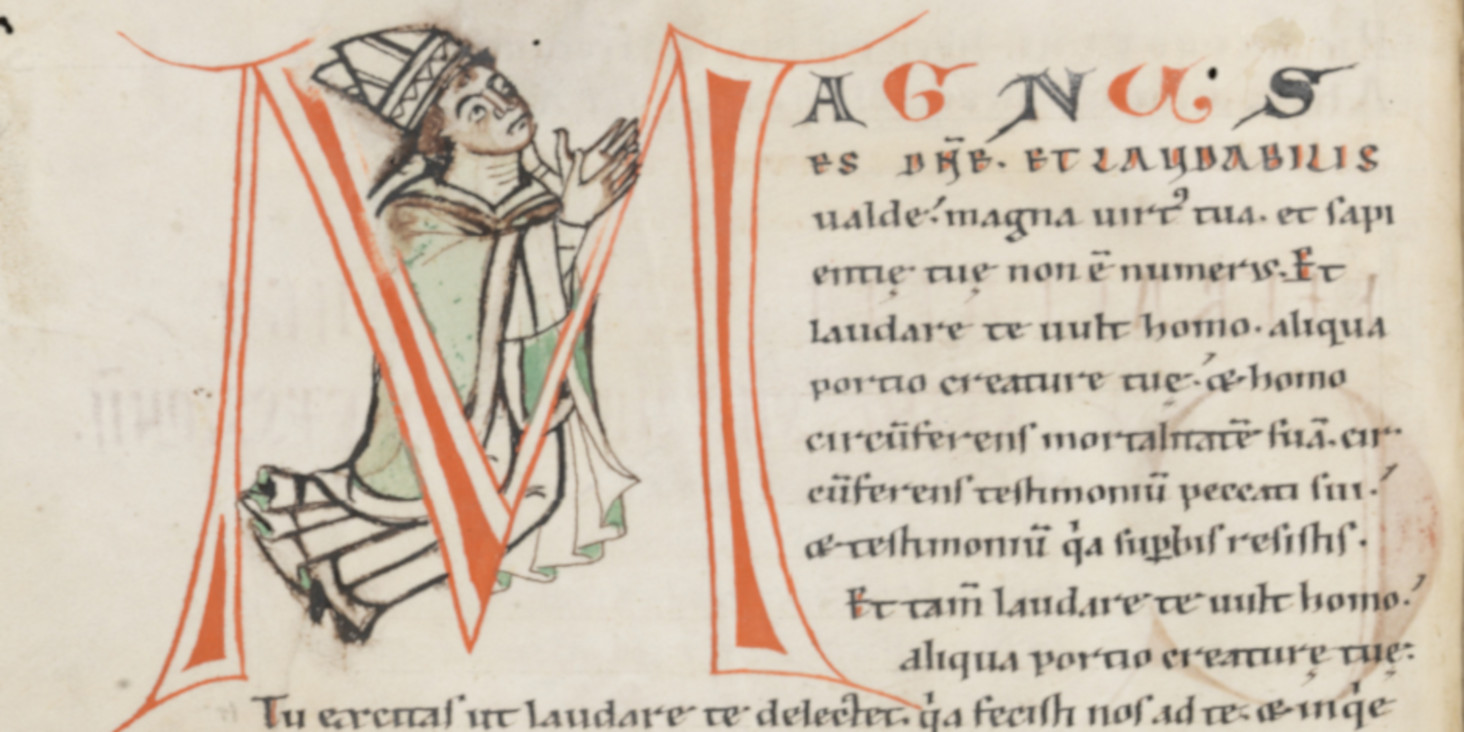 MAGNUS
ES DN̄E. ET LAUDABILIS
ualde: magna uirtꝰ tua. et sapi
entię tuę non ē numerus. Et
laudare te uult homo. aliqua
portio creature tuę. & homo
circūferens mortalitatē suā. cir
cūferens testimoniū peccati sui.
& testimoniū qͥa suꝑbis resistis.
Et tam̄ laudare te uult homo.
aliqua portio creaturę tuę:
Tu excitas ut laudare te delectet. qͥa fecisti nos ad te. & inqͥe